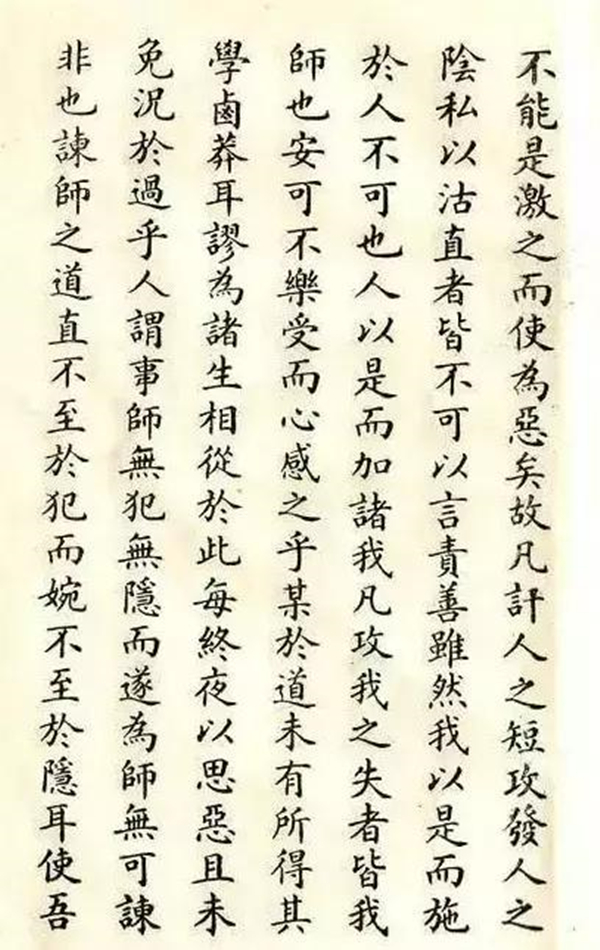 不能是激之而使為惡矣故凡訐人之短攻發人之
陰私以沽直者皆不可以言責善雖然我以是而施
於人不可也人以是而加諸我凡攻我之失者皆我
師也安可不樂受而心感之乎某於道未有所得其
學鹵莽耳謬為諸生相從於此每終夜以思惡且未
免況於過乎人謂事師無犯無隱而遂為師無可諫
非也諫師之道直不至於犯而婉不至於隱耳使吾